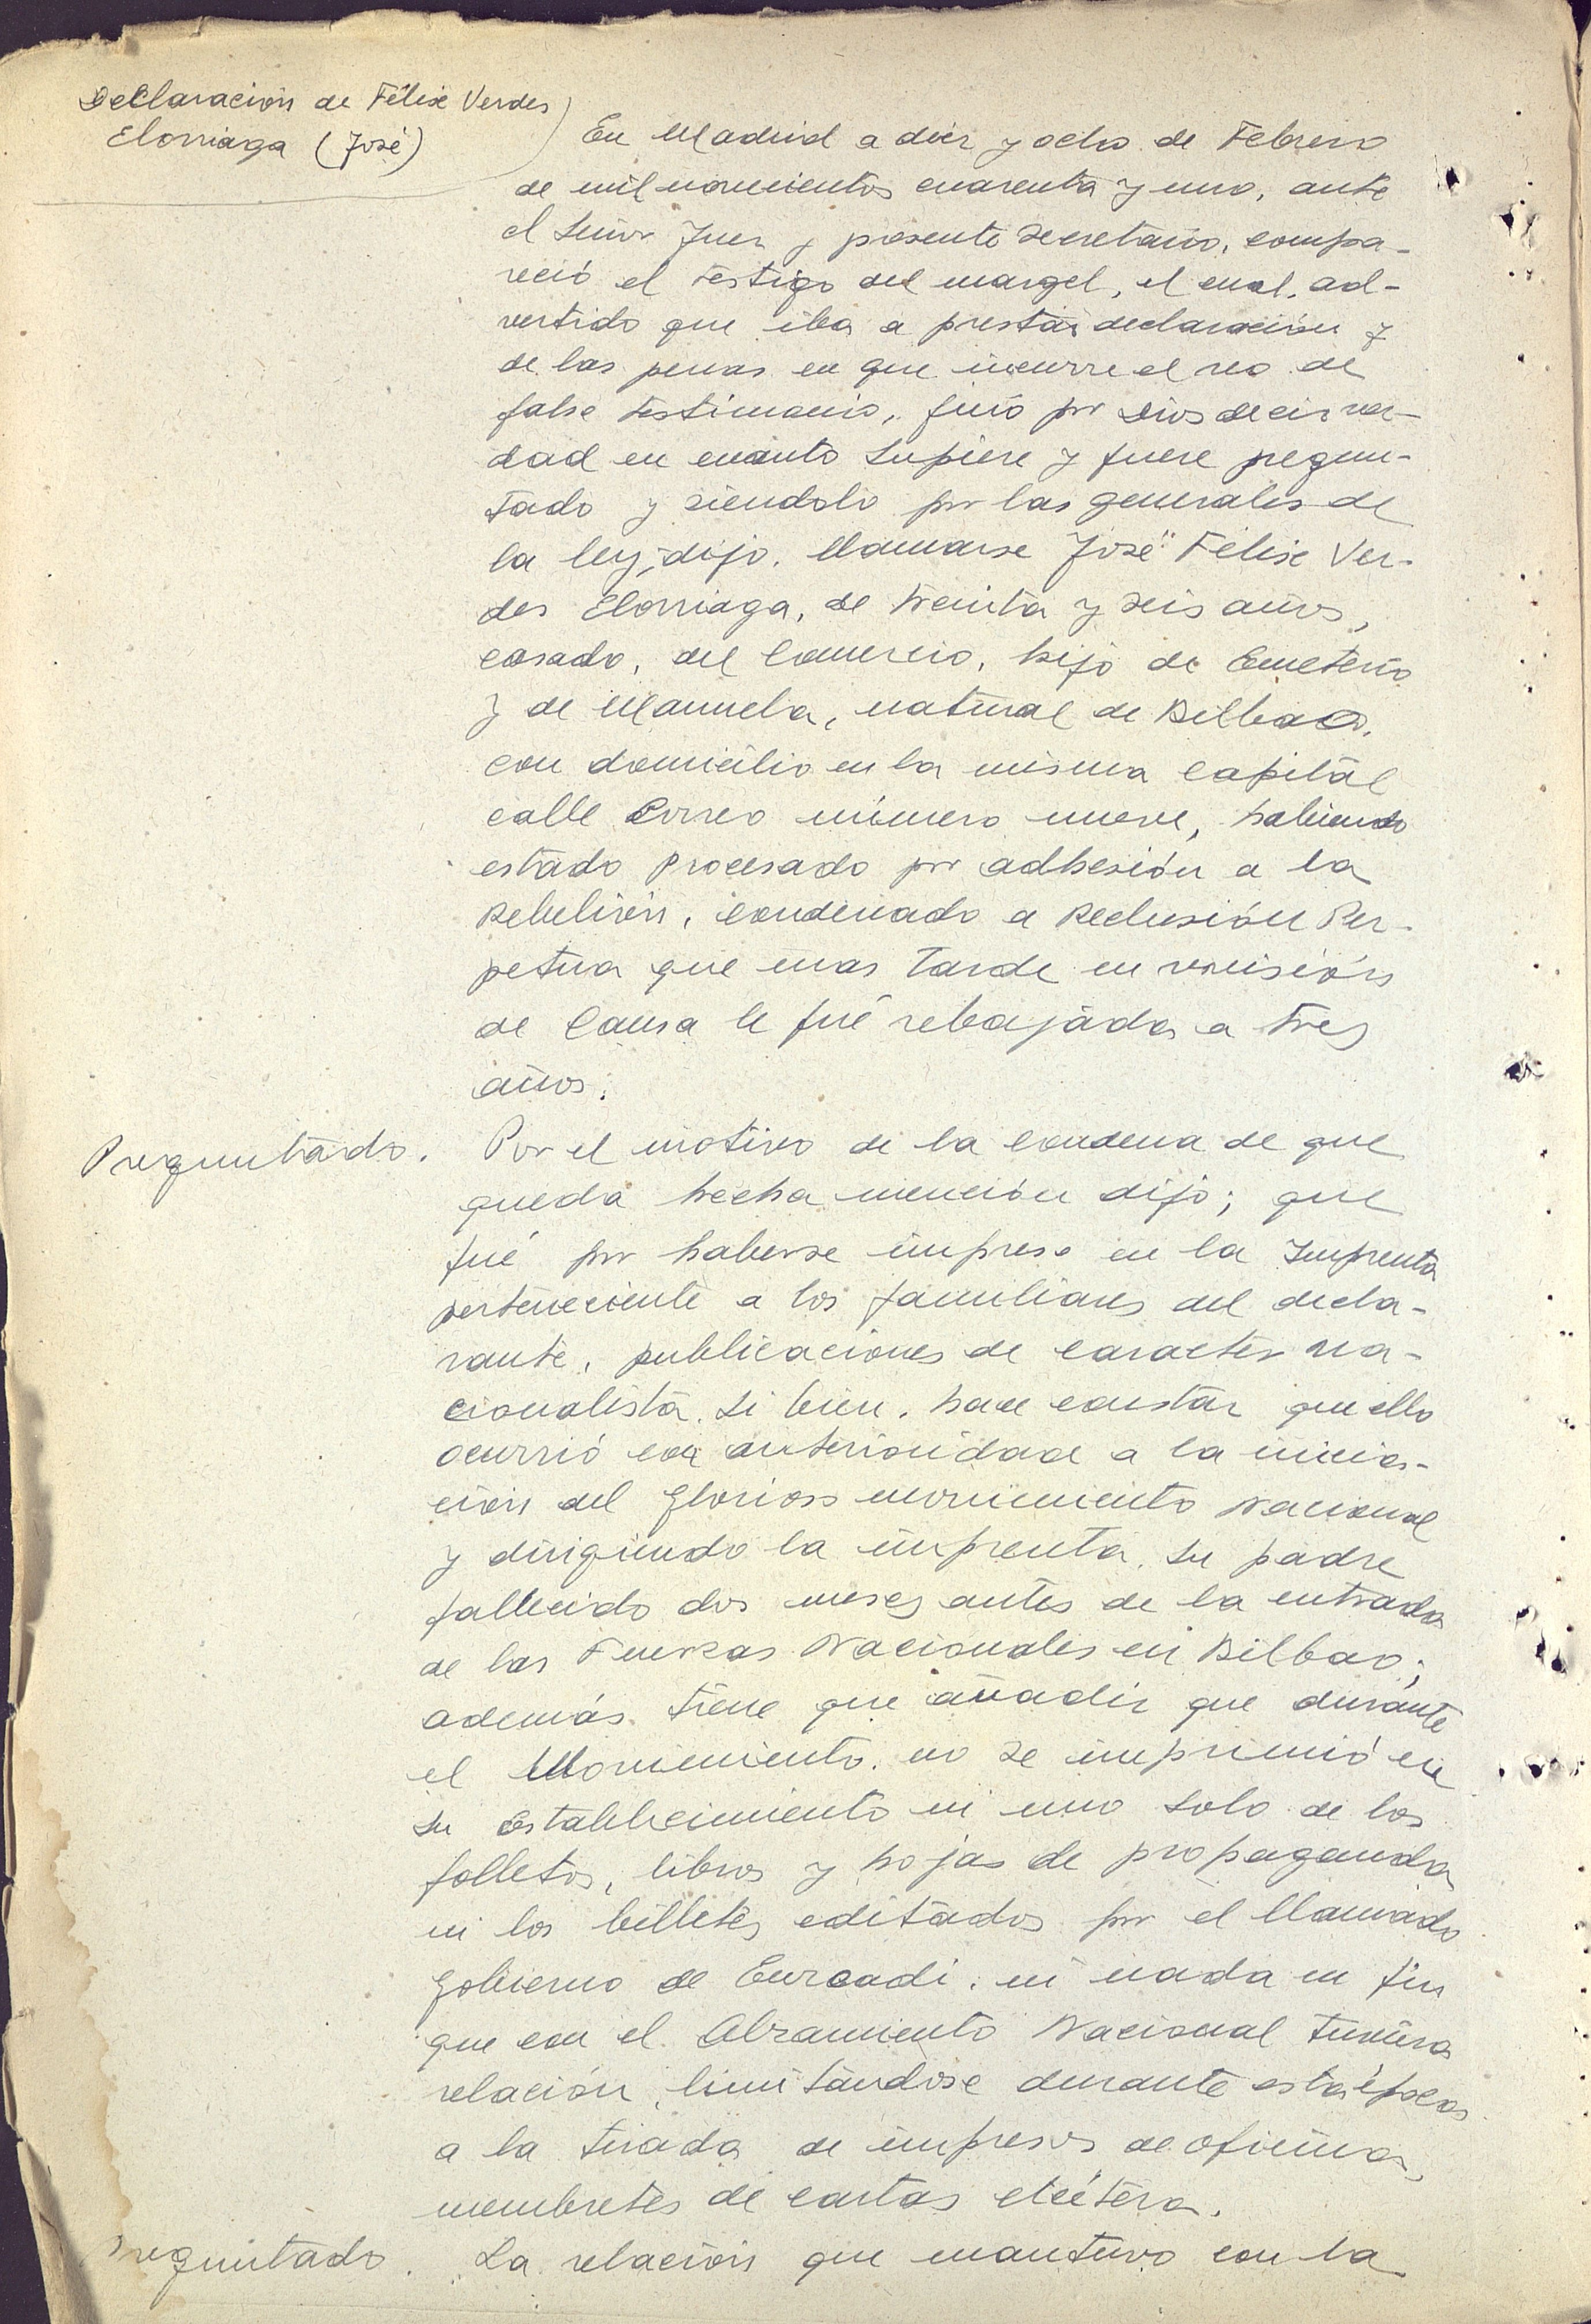 Declaración de Félix Verdes
Elorriaga (José)
En Madrid a diez y ocho de Febrero
de mil novecientos cuarenta y uno, ante
el Señor Juez y presente Secretario, compa-
reció el testigo del margel, el cual, ad-
vertido que iba a prestar declaración y
de las penas en que incurre el reo de
falso testimonio, juró por Dios decir ver-
dad en cuanto supiere y fuere pregun-
tado y siéndolo por las generales de
la ley, dijo, llamarse José Félix Ver-
des Elorriaga, de treinta y seis años,
casado, del Comercio, hijo de Emeterio
y de Manuela, natural de Bilbao,
con domicilio en la misma Capital
calle Correo número nueve, habiendo
estado Procesado por adhesión a la
Rebelión, Condenado a Reclusión Per-
petua que mas Tarde en revisión
de Causa le fué rebajada a tres
años.
Preguntado. Por el motivo de la condena de que
queda hecha mención dijo; que
fué por haberse impreso en la Imprenta
perteneciente a los familiares del decla-
rante, publicaciones de caracter na-
cionalista, si bien, hace constar que ello
ocurrió con anterioridad a la inicia-
ción del Glorioso movimiento Nacional
y dirigiendo la imprenta, su padre
fallecido dos meses antes de la entrada
de las Fuerzas Nacionales en Bilbao;
además tiene que añadir que durante
el Movimiento, no se imprimió en
su establecimiento ni uno solo de los
folletos, libros y hojas de propaganda
ni los billetes editados por el llamado
Gobierno de Euzcadi, ni nada en fin
que con el Alzamiento Nacional tuviera
relación, limitándose durante esta época
a la tirada de impresos de oficina,
membretes de cartas etcétera.
Preguntado. La relación que mantuvo con la